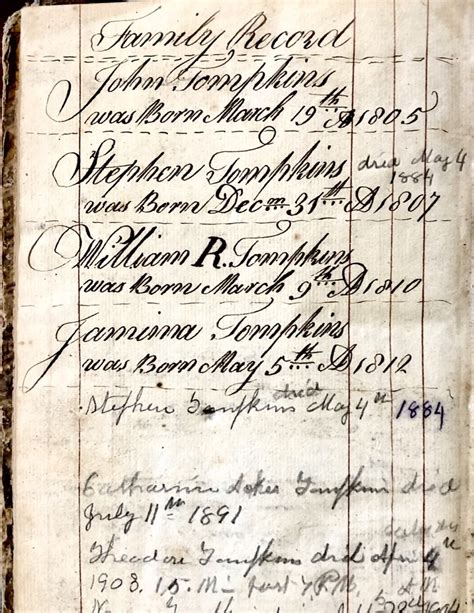 Family Record
John Tompkins
was Born March 19th AD 1805
Stephen Tompkins died May 4
1884
was Born Decm 31th AD 1807
William R. Tompkins
was Born March 9th AD 1810
Jamima Tompkins
was Born May 5th AD 1812
Stephen Tompkins died May 4th 1884
Catharine Tompkins died
July 11th 1891
Theodore Tompkins died Apr 4
1908. 15. M- past 7 P.M.